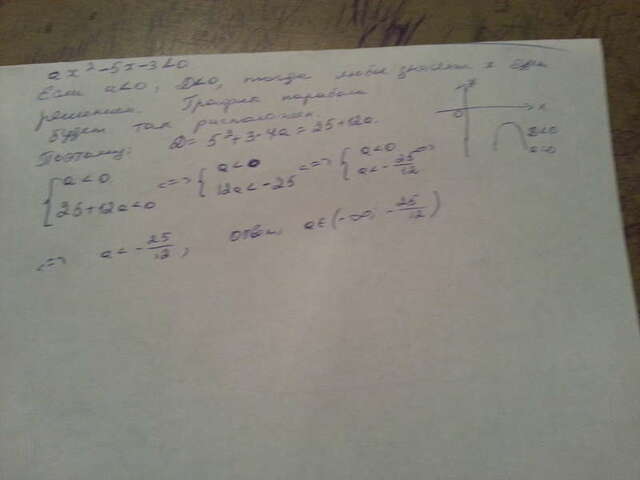 ax² - 5x - 3 < 0
Если a<0, D<0, тогда любое значение x будет
решением. График параболы
будет так расположен.
Поэтому: D = 5² + 3·4a = 25 + 12a.
{ a < 0
25 + 12a < 0
<=> { a < 0
12a < -25
<=> { a < 0
a < -25/12
<=>
<=> a < -25/12; Ответ: a ∈ (-∞; -25/12)
0
x
D<0
a<0